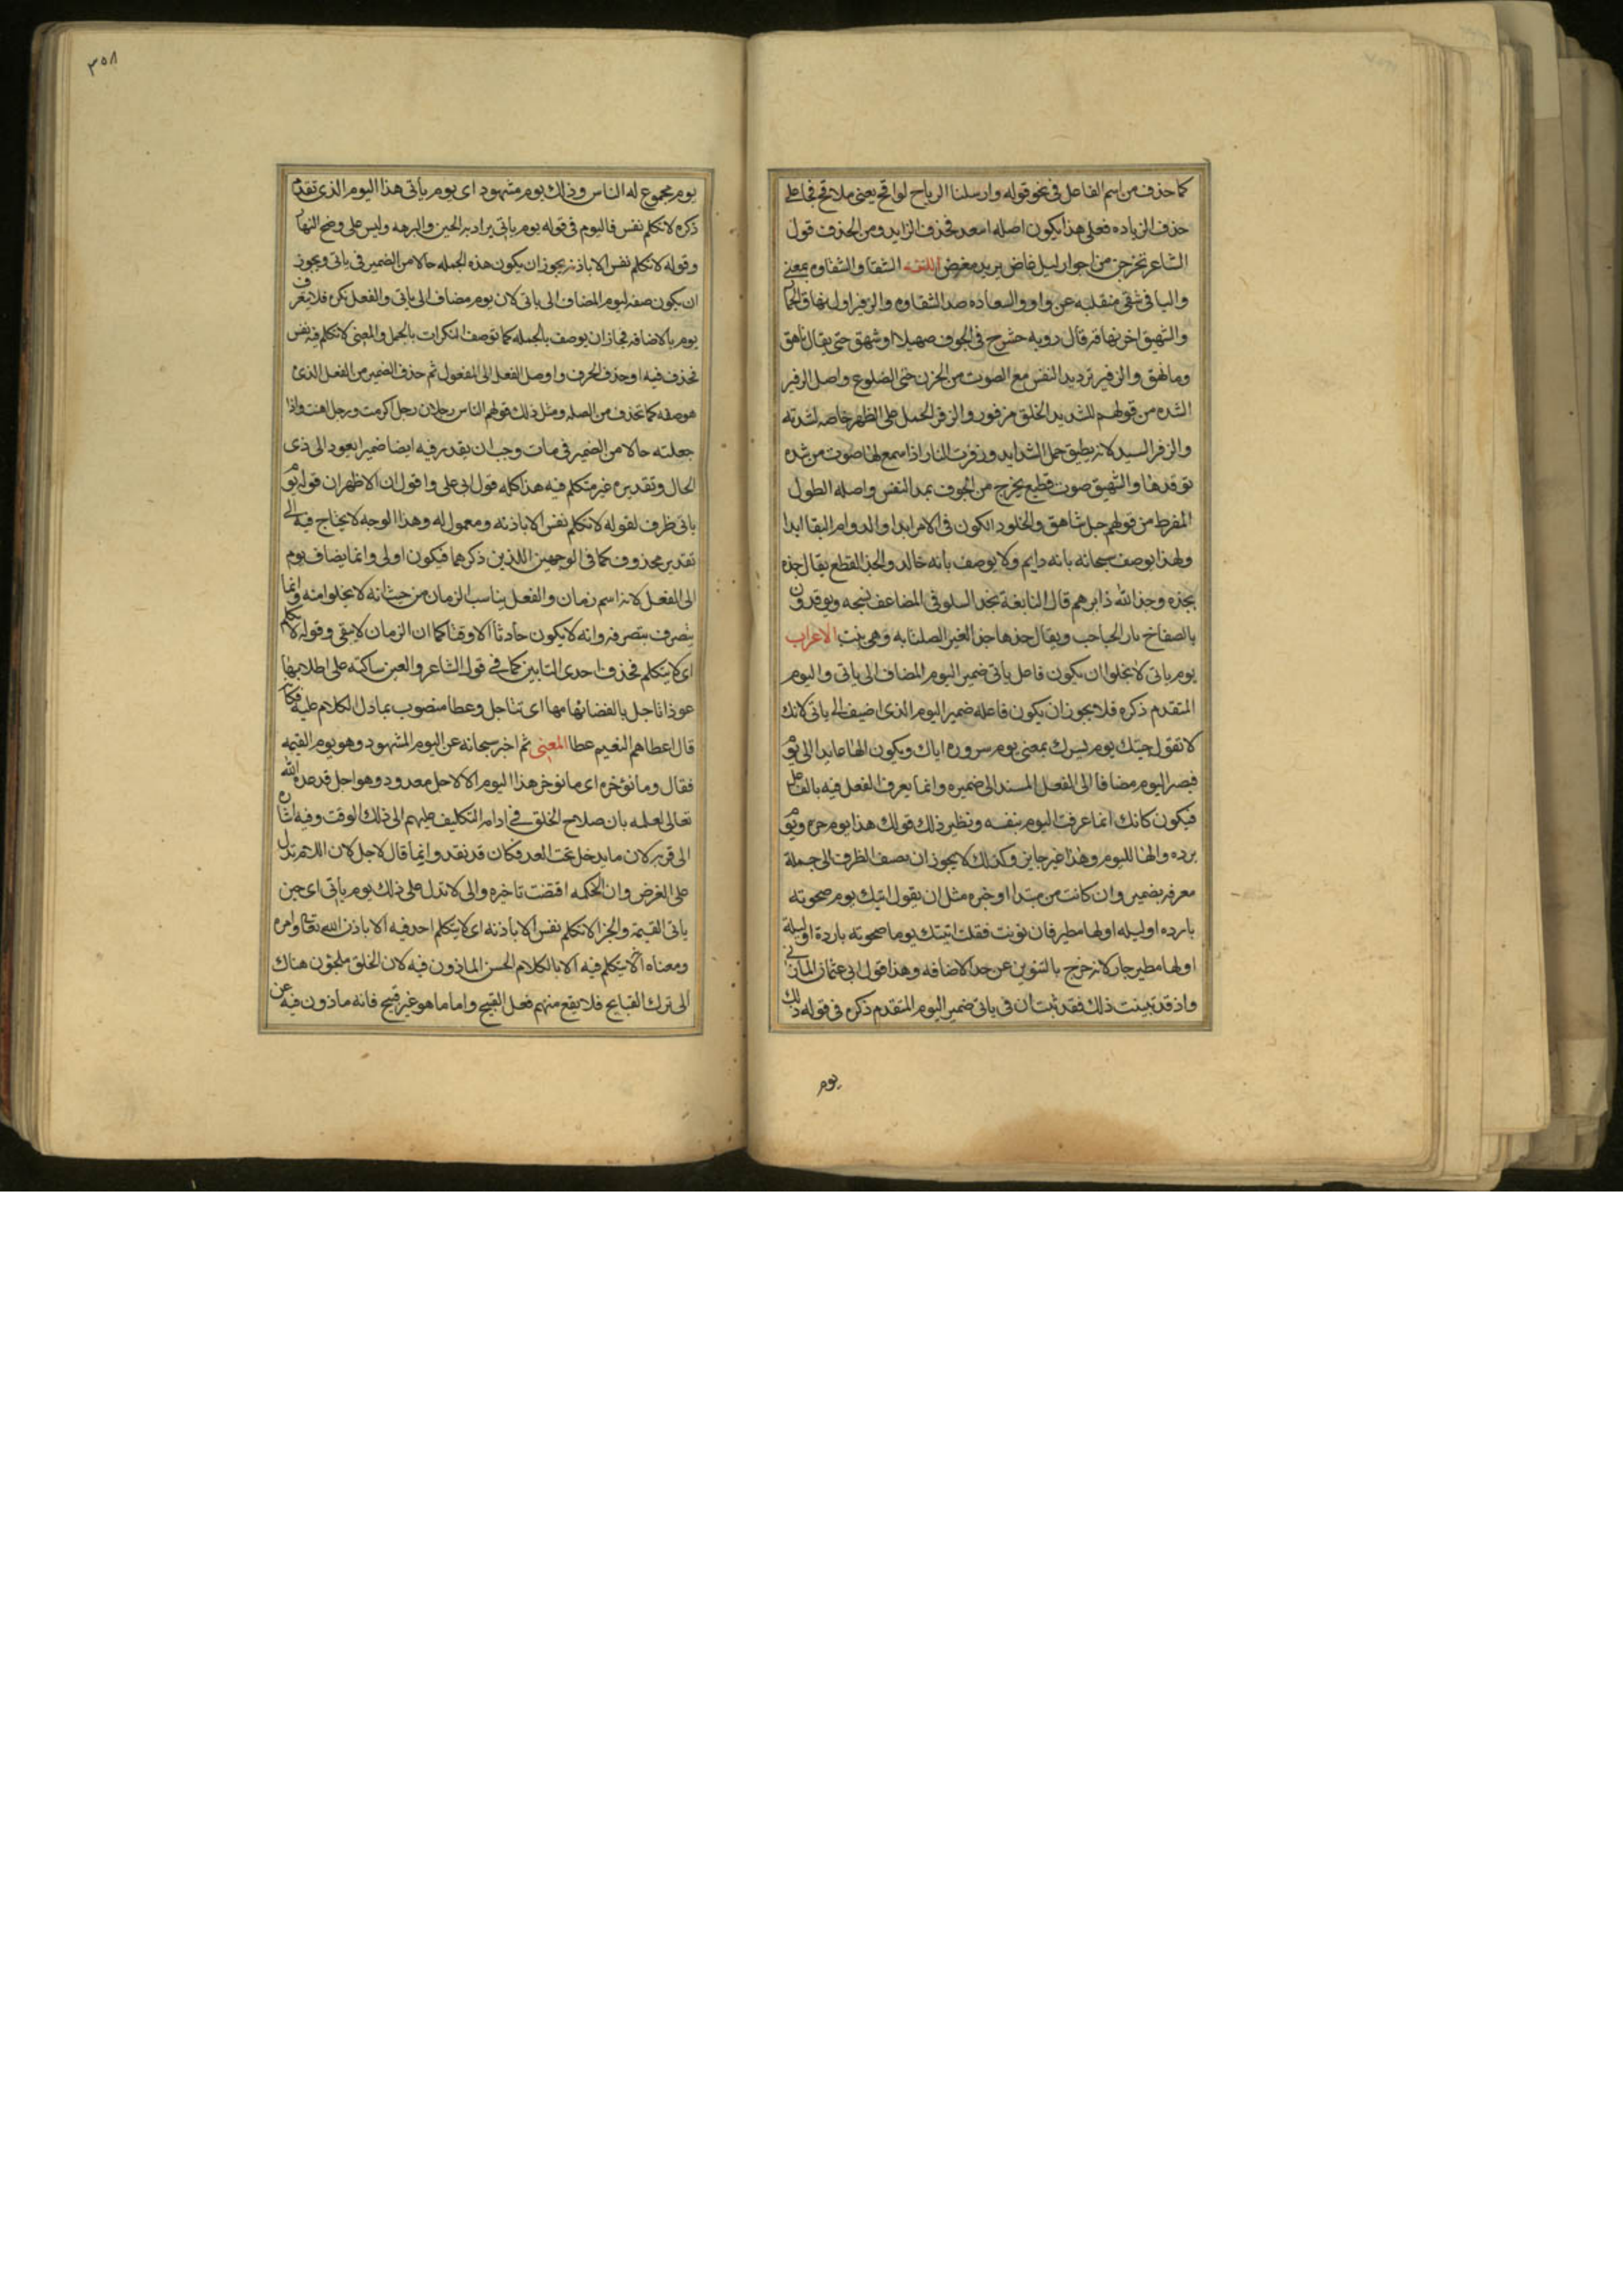 كما حذف من اسم الفاعل في نحو قوله وارسلنا الرياح لواقح يعني ملاقح فجا على
حذف الزياده فعلى هذا يكون اصله اسعد فحذف الزايد ومن الحذف قول
الشاعر تخرجن من اجواز ليل غاض يريد مغض اللغه الشقا والشقاوه بمعنى
واليا في شقي منقلبه عن واو والسعاده ضد الشقاوه والزفير اول نهاق الحمار
والشهيق اخر نهاقه قال رويه حشرج في الجوف صهيلا او شهق حتى يقال ناهق
وما نهق والزفير ترديد النفس مع الصوت من الحزن حتى الضلوع واصل الزفير
الشده من قولهم للشديد الخلق مزفور والزفر الحمل على الظهر خاصه لشدته
والزفر السيد لانه يطيق حمل الشدايد وزفرت النار اذا سمع لها صوت من شده
توقدها والشهيق صوت فظيع يخرج من الجوف بمد النفس واصله الطول
المفرط من قولهم جبل شاهق والخلود الكون في الامر ابدا والدوام البقا ابدا
ولهذا يوصف سبحانه بانه دايم ولا يوصف بانه خالد والجذ القطع يقال جذه
يجذه وجذ الله دابرهم قال النابغة تجذ السلوقي المضاعف نسجه ويوقدون
بالصفاح نار الحباحب ويقال جذها جذ العير الصلنا به وهي بنت الاعراب
يوم ياتي لا يخلوا ان يكون فاعل يأتي ضمير اليوم المضاف الى ياتي واليوم
المتقدم ذكره فلا يجوز ان يكون فاعله ضمير اليوم الذي اضيف الى ياتي لانك
لا تقول جيتك يوم يسرك بمعنى يوم سروره اياك ويكون الها عايدا الى يوم
فيصر اليوم مضافا الى الفعل المسند الى ضميره وانما يعرف الفعل فيه بالفاعل
فيكون كانك انما عرفت اليوم بنفسه ونظير ذلك قولك هذا يوم حره ويوم
برده والها لليوم وهذا غير جايز وكذلك لا يجوز ان يضف الظرف الى جملة
معرفه بضمير وان كانت من مبتدا او خبره مثل ان يقول اتيك يوم صحوته
بارده او ليله اولها مطير فان نونت فقلت اتيتك يوما صحوته باردة او ليلة
اولها مطير جاز لانه خرج بالتنوين عن حد الاضافه وهذا قول ابي عثمان المازني
واذ قد تبينت ذلك فقد ثبت ان في ياتي ضمير اليوم المتقدم ذكره في قوله ذلك
يوم
٣٥٨
يوم مجموع له الناس وذلك يوم مشهود اي يوم يأتي هذا اليوم الذي تقدم
ذكره لا تكلم نفس فاليوم في قوله يوم ياتي يراد به الحين والبرهه وليس على وضح النهار
وقوله لا تكلم نفس الا باذنه يجوز ان يكون هذه الجمله حالا من الضمير في ياتي ويجوز
ان يكون صفه ليوم المضاف الى ياتي لان يوم مضاف الى ياتي والفعل نكره فلا يتعرف
يوم بالاضافه فجاز ان يوصف بالجمله كما توصف النكرات بالجمل والمعنى لا تكلم فيه نفس
فحذف فيه او حذف الحرف واوصل الفعل الى المفعول ثم حذف الضمير من الفعل الذي
هو صفه كما تحذف من الصله ومثل ذلك قولهم الناس رجلان رجل اكرمت ورجل اهنت واذا
جعلته حالا من الضمير في يات وجب ان يقدر فيه ايضا ضميرا يعود الى ذي
الحال وتقديره غير متكلم فيه هذا كله قول ابي علي واقول ان الاظهر ان قوله يوم
ياتي ظرف لقوله لا تكلم نفس الا باذنه ومعمول له وهذا الوجه لا يحتاج فيه الى
تقدير محذوف كما في الوجهين اللذين ذكرهما فيكون اولى وانما يضاف يوم
الى الفعل لانه اسم زمان والفعل يناسب الزمان من حيث انه لا يخلوا منه وانما
يتصرف بتصرفه وانه لا يكون حادثا الا وقتا كما ان الزمان لا يبقى وقوله لا تكلم
اي لا يتكلم فحذف احدى التايين كما في قول الشاعر والعين ساكنه على اطلائها
عوذا تاجل بالفضا بهامها اي تتاجل وعطا منصوب بما دل الكلام عليه فكانه
قال اعطاهم النعيم عطا المعنى ثم اخبر سبحانه عن اليوم المشهود وهو يوم القيمه
فقال وما نؤخره اي ما نوخر هذا اليوم الا لاجل معدود وهو اجل قد عده الله
تعالى لعلمه بان صلاح الخلق في ادامه التكليف عليهم الى ذلك الوقت وفيه اشاره
الى قربه لان ما يدخل تحت العد فكان قد نفد وانما قال لاجل لان اللام تدل
على الغرض وان الحكمه اقتضت تاخيره والى لا تدل على ذلك يوم يأتي اي حين
ياتي القيمة والجزا لا تكلم نفس الا باذنه اي لا يتكلم احد فيه الا باذن الله تعالى وامره
ومعناه انه لا يتكلم فيه الا بالكلام الحسن الماذون فيه لان الخلق ملجئون هناك
الى ترك القبايح فلا يقع منهم فعل القبيح واما ما هو غير قبيح فانه ماذون فيه عن